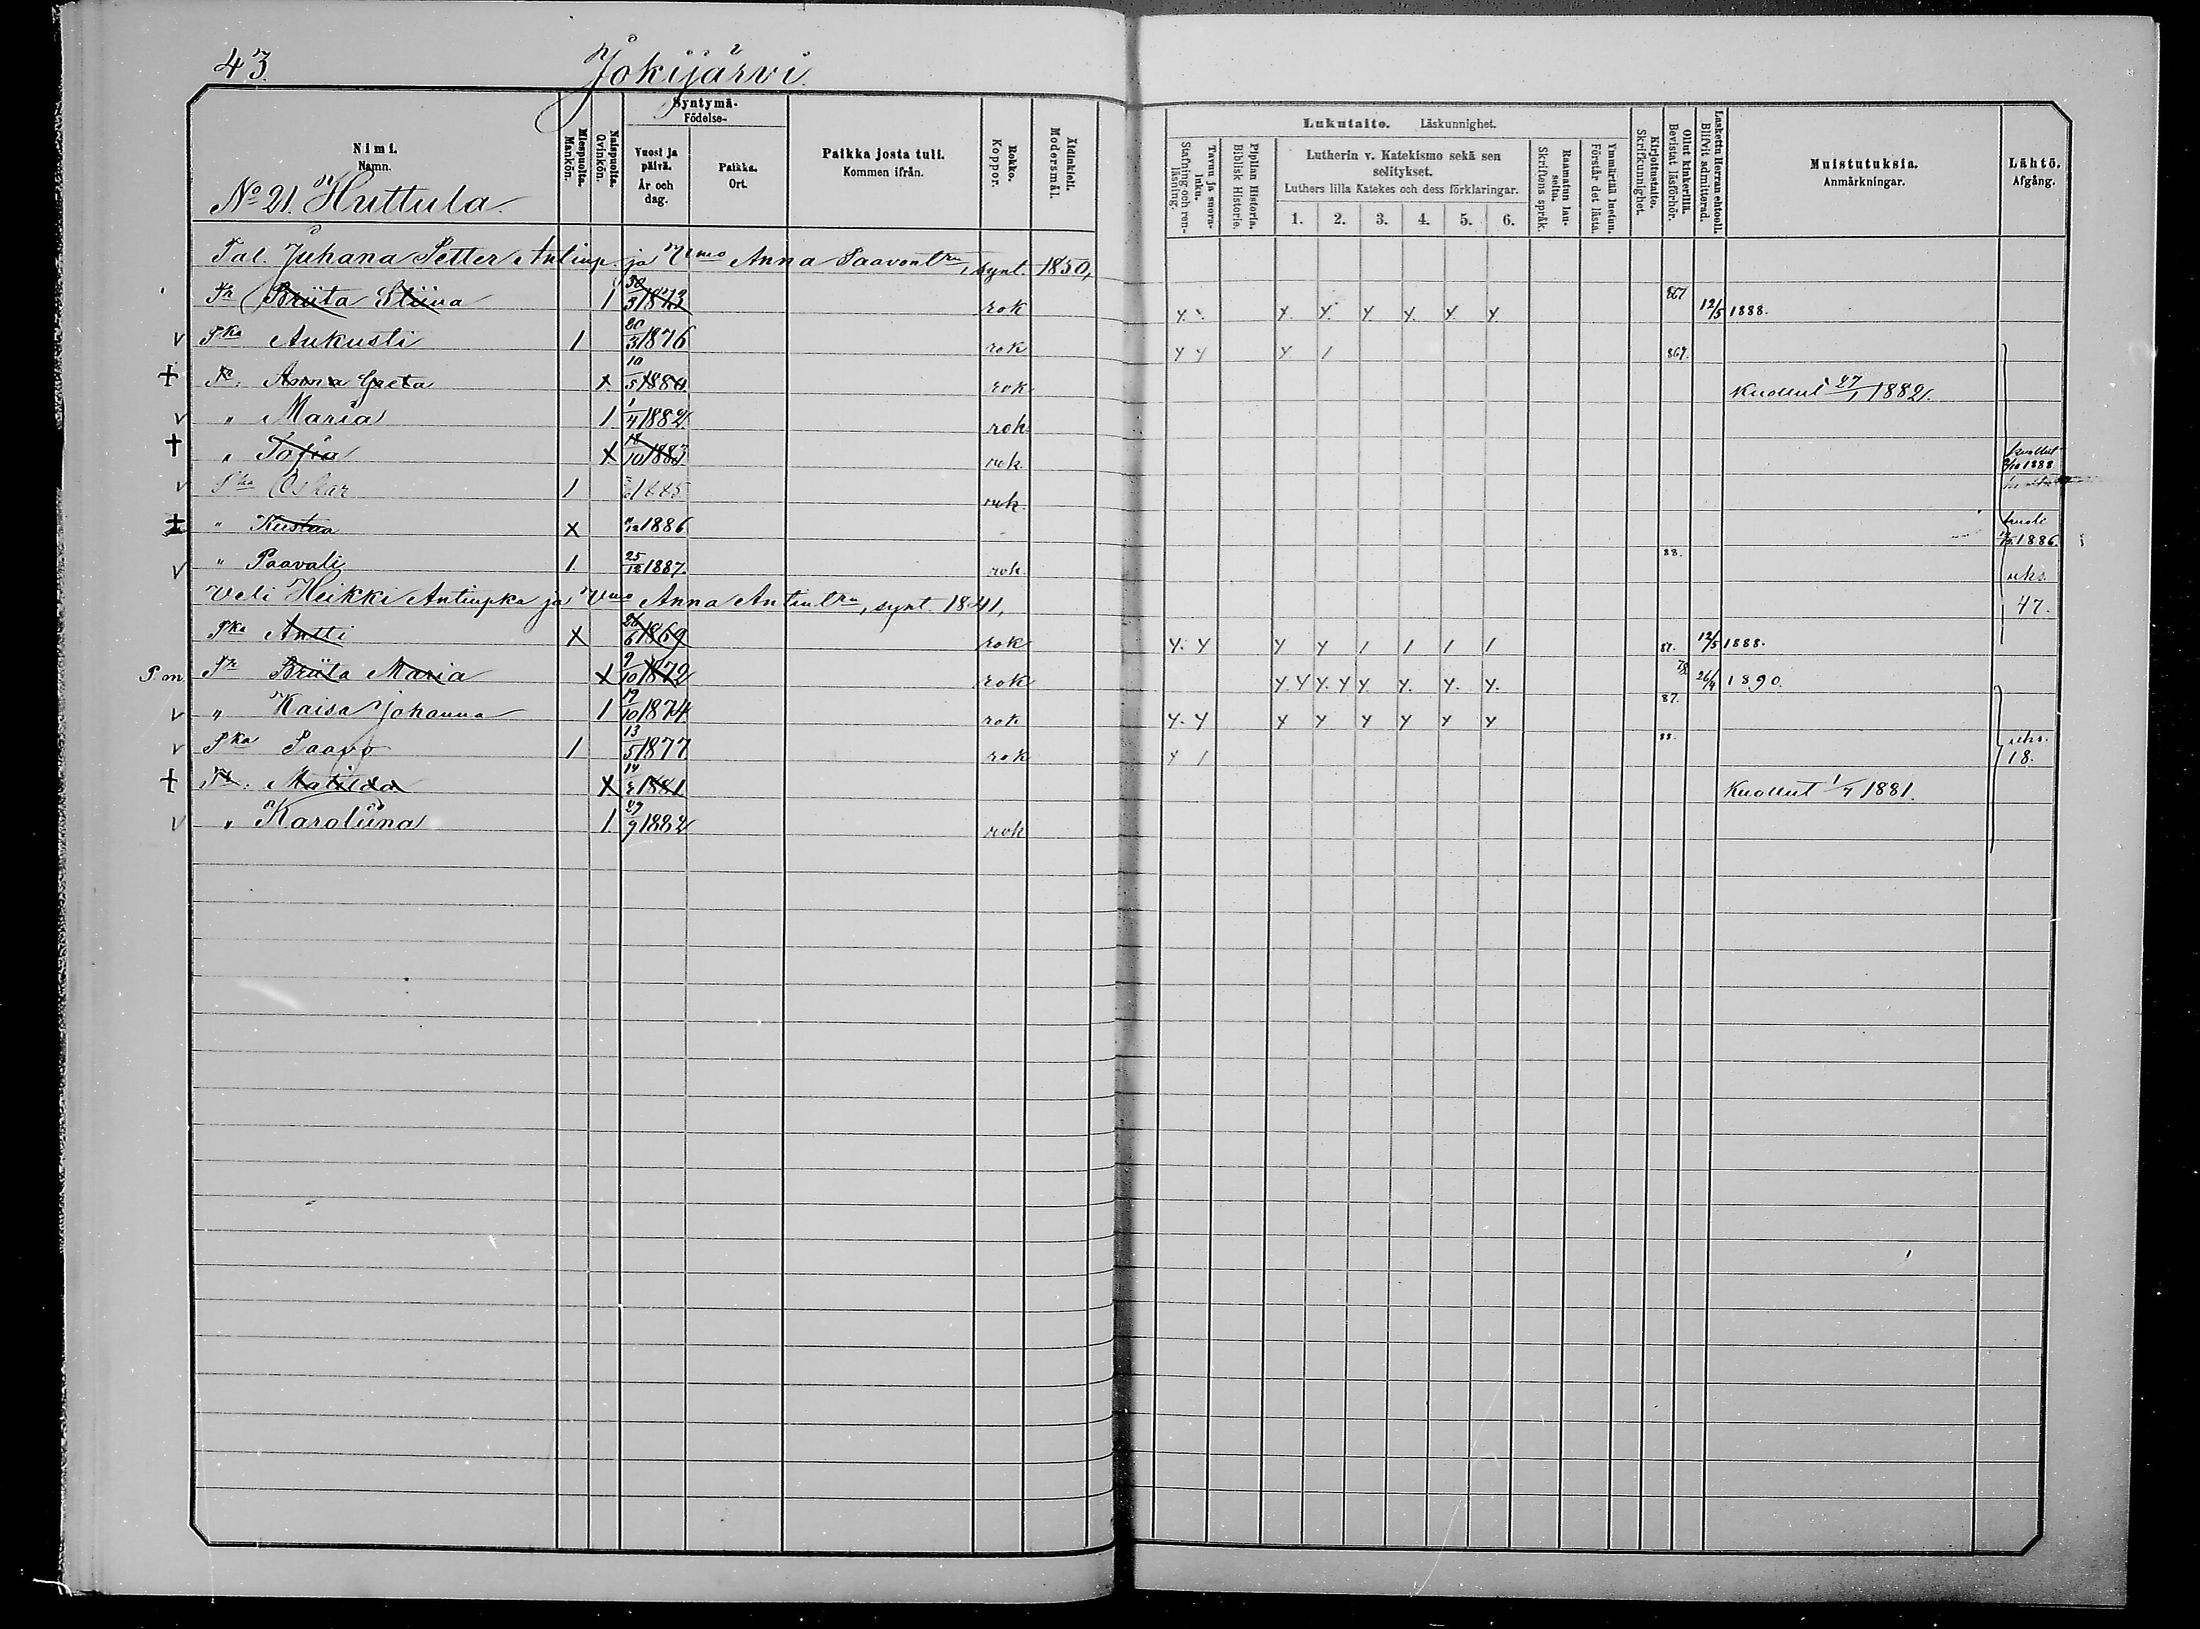 43.
Jokijärvi
Nimi. Namn.
Miespuolia. Mankön.
Naispuolia. Qvinkön.
Syntymä- Födelse-
Vuosi ja päivä. År och dag.
Paikka. Ort.
Paikka josta tuli. Kommen ifrån.
Rokko. Koppor.
Äidinkieli. Modersmål.
Lukutaito. Läskunnighet.
Tavuu ja suora- luku. Stafning och ren- läsning.
Piplian Historia. Biblisk Historie.
Lutherin v. Katekismo sekä sen selitykset.
Luthers lilla Katekes och dess förklaringar.
1. 2. 3. 4. 5. 6.
Raamatun lau- seita. Skriftens språk.
Ymmärtää luetun. Förstår det lästa.
Kirjoitustaito. Skrifkunnighet.
Ollut kinkerillä. Bevistat läsförhör.
Laskettu Herran ehtooll. Blifvit admitterad.
Muistutuksia. Anmärkningar.
Lähtö. Afgång.
No 21. Huttula.
Tal. Juhana Petter Antinp. ja Vmo Anna Paavontr, synt. 1850,
Tr Briita Stiina 1 30/3 1873 rok y. y. y. y. y. y. y 867 12/5 1888.
v Pka Aukusti 1 20/3 1876 rok y y y 1 867.
† Tr. Anna Greta x 10/5 1880 rok Kuollut 27/1 1882.
v " Maria 1 1/4 1882 rok
† " Sofia x 18/10 1883 rok kuollut 1888
v Pka Oskar 1 1885 rok
† " Kustaa x 1886 kuoli 1886.
v " Paavali 1. 25/12 1887. rok 88. siks. 47.
Veli Heikki Antinpka ja Vmo Anna Antintr, synt 1841,
Pka Antti x 26/6 1869 rok y. y y y 1 1 1 1 87. 12/5 1888.
P m Tr Briita Maria x 9/10 1872 rok y y y. y y y. y. y. 78 26/4 1890.
v " Kaisa Johanna 1 19/10 1874 rok y. y y y y y y y 87.
v Pka Paavo 1 13/5 1877 rok y 1 88. siks. 18.
† Tr. Matilda x 14/2 1881 Kuollut 1/7 1881.
v " Karoliina 1 29/9 1882 rok